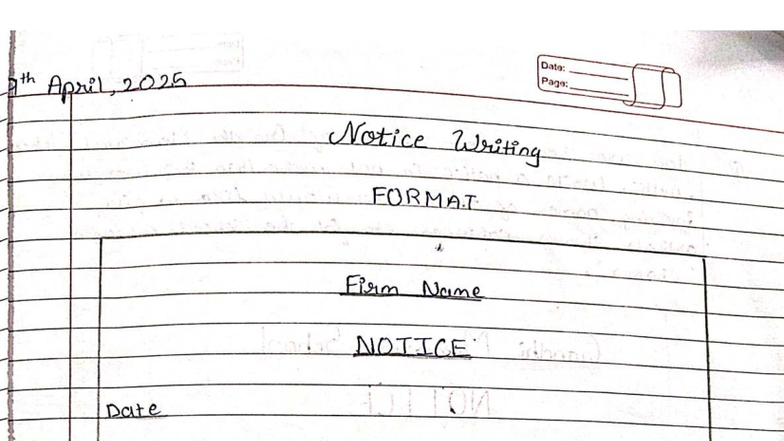 Date:
Page:
9th April, 2025
Notice Writing
FORMAT
Firm Name
NOTICE
Date